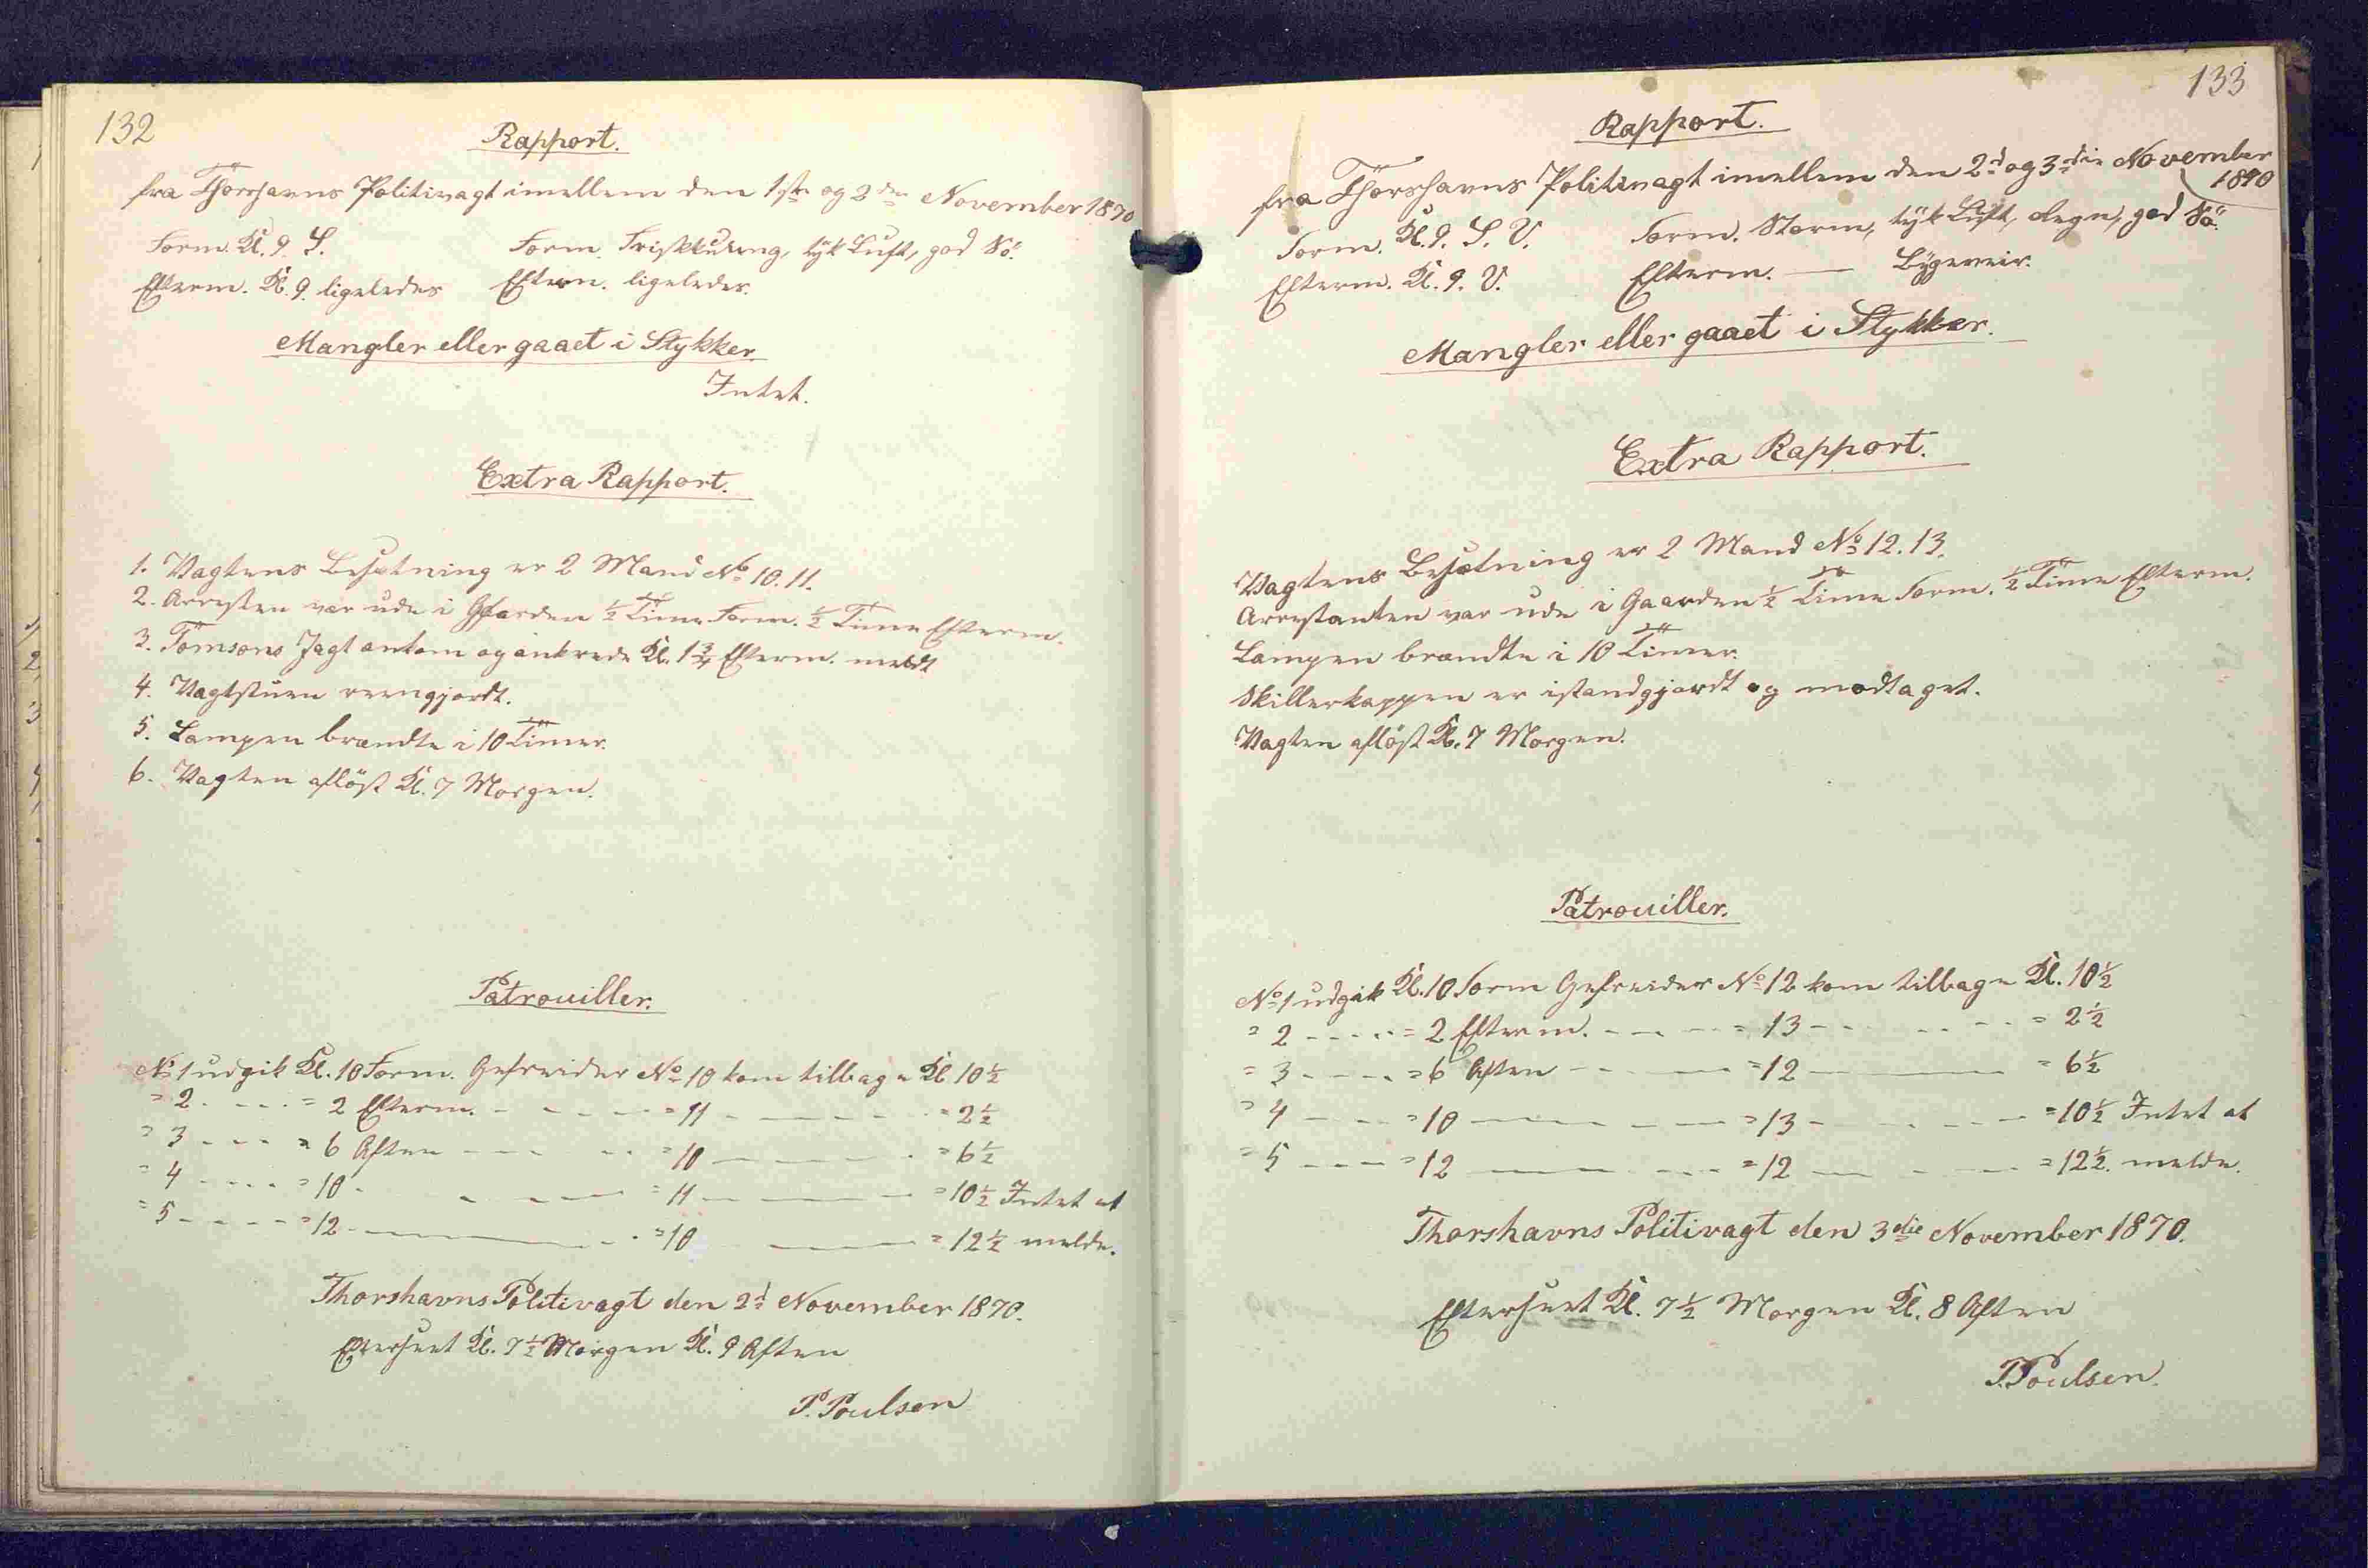 132
Rapport.
fra Thorshavns Politivagt imellem den 1ste og 2den November 1870
Form. Kl. 9. S. Form. Friskkuling, tyk Luft, god Sö.
Efterm. Kl. 9. ligeledes Efterm. ligeledes.
Mangler eller gaaet i Stykker.
Intet.
Extra Rapport.
1. Vagtens Besætning er 2 Mand No 10. 11.
2. Arresten var ude i Gaarden ½ Time Form. ½ Time Efterm.
3. Tömsons Jagt ankom og ankrede Kl. 1¾ Efterm. meldt
4. Vagtstuen reengjordt.
5. Lampen brændte i 10 Timer.
6. Vagten aflöst Kl. 7 Morgen.
Patrouiller.
No 1 udgik Kl. 10 Form. Gefreider No 10 kom tilbage Kl. 10½
= 2 - - - = 2 Efterm. - - - = 11 - - - = 2½
= 3 - - - = 6 Aften - - - = 10 - - - = 6½
= 4 - - - = 10 - - - = 11 - - - = 10½ Intet at
= 5 - - - = 12 - - - = 10 - - - = 12½ melde.
Thorshavns Politivagt den 2d November 1870.
Efterseet Kl. 7½ Morgen Kl. 9 Aften
P. Poulsen
133
Rapport.
fra Thorshavns Politivagt imellem den 2d og 3die November
1870
Form. Kl. 9. S. V. Form. Storm, tyk Luft, Regn, god Sö.
Efterm. Kl. 9. V. Efterm. — Bygeveir.
Mangler eller gaaet i Stykker.
Extra Rapport.
Vagtens Besætning er 2 Mand No 12. 13.
Arrestanten var ude i Gaarden ½ Time Form. ½ Time Efterm.
Lampen brændte i 10 Timer.
Skillerkappen er istandgjordt og modtaget.
Vagten aflöst Kl. 7 Morgen.
Patrouiller.
No 1 udgik Kl. 10 Form Gefreider No 12 kom tilbage Kl. 10½
= 2 - - - = 2 Efterm. - - - = 13 - - - = 2½
= 3 - - - = 6 Aften - - - = 12 - - - = 6½
= 4 - - - = 10 - - - = 13 - - - = 10½ Intet at
= 5 - - - = 12 - - - = 12 - - - = 12½. melde.
Thorshavns Politivagt den 3die November 1870.
Efterseet Kl. 7½ Morgen Kl. 8 Aften
P. Poulsen.